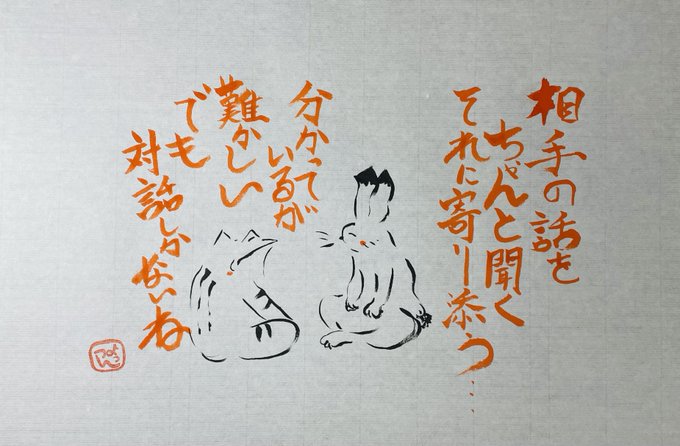 相手の話を
ちゃんと聞く
それに寄り添う…
分かって
いるが
難かしい
でも
対話しかないね